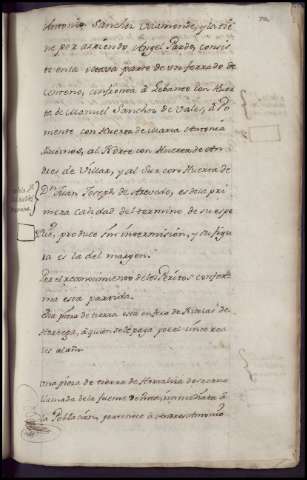 Antonio Sanchez Vaamonde, y la tie
ne por asciendo Angel Pardo, consis
te en la octava parte de un ferrado de
terreno, confronta à Lebante con Huer
ta de Manuel Sanchez de Vale, à Po
niente con Huerta de Maria Antonia
al Norte con Huerta de An
dres de Villar, y al Sur con Huerta de
Dn Juan Joseph de Azevedo, es de la pri
mera calidad del termino de su espe
cie, produce sin intermision, y su figu
ra es la del margen.
Por el reconocimiento de los Peritos conforma
esta partida.
Esta pieza de tierra esta en foro de Nicolas de
Hortega, à quien se le paga por el once rea
les al año.
Una pieza de tierra de Hortaliza de secano
llamada de la fuente de inmediata à
la Poblacion, pertenece à Andres Antonio